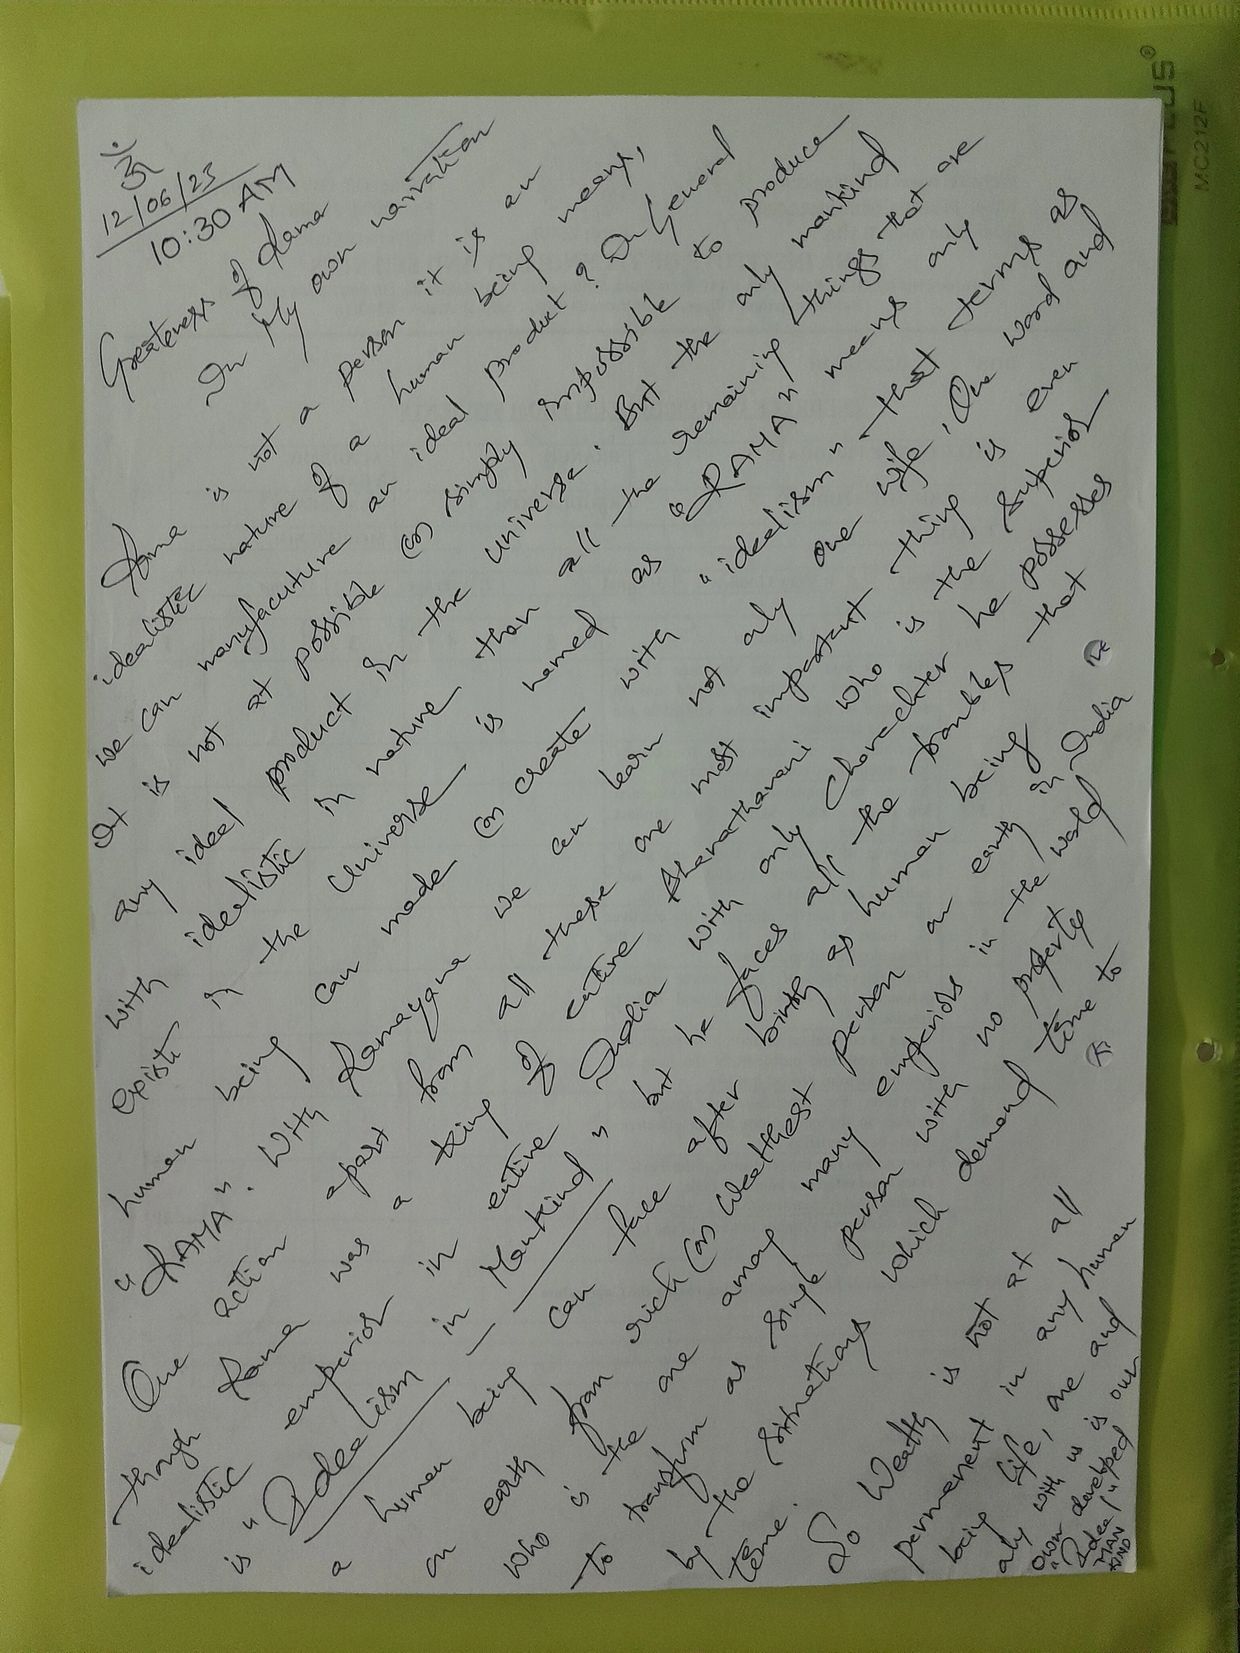 ॐ
12/06/25
10:30 AM
Greateness of Rama
In My own narration
Rama is not a person it is an
idealistic nature of a human being means,
we can manufacuture an ideal product? In General
It is not at possible (or) simply impossible to produce
any ideal product in the universe. But the only mankind
with idealistic in nature than all the remaining things that are
exist in the Universe is named as "RAMA" means only
human being can made (or) create with "idealism" that terms as
"RAMA". With Ramayana we can learn not only one wife, One word and
One action apart from all these one most important thing is even
though Rama was a king of entire Bharathavani who is the superior
idealistic emperior in entire India with only charachter he posseses
is "Idealism in Mankind" but he faces all the troubles that
a human being can face after birth as human being
on earth from rich (or) wealthest person on earth in India
who is the one among many emperiors in the world
to transform as single person with no property
by the situations which demand time to
time.
So Wealth is not at all
permenent in any human
being life, one and
only with us is our
own developed
"Ideal"ped
MAN
KIND
PLUS®
MC212F